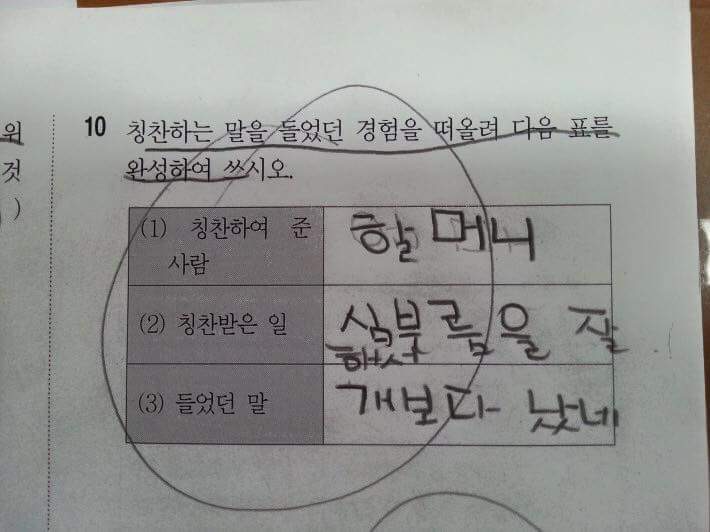 위
것
)
10 칭찬하는 말을 들었던 경험을 떠올려 다음 표를
완성하여 쓰시오.
(1) 칭찬하여 준
사람
할머니
(2) 칭찬받은 일
심부름을 잘
했
(3) 들었던 말
개보다 났네